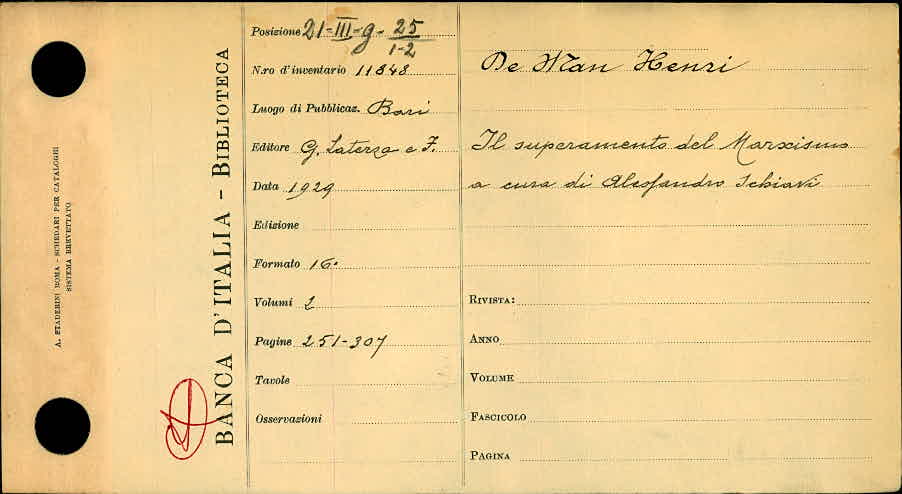 A. STADERINI ROMA - SCHEDARI PER CATALOGHI
SISTEMA BREVETTATO
BANCA D'ITALIA - BIBLIOTECA
Posizione 21-III-g- 25
1-2
N.ro d'inventario 11848
Luogo di Pubblicaz. Bari
Editore G. Laterza e F.
Data 1929
Edizione
Formato 16°
Volumi 2
Pagine 251-307
Tavole
Osservazioni
De Man Henri
Il superamento del Marxismo
a cura di Alessandro Schiavi
RIVISTA:
ANNO
VOLUME
FASCICOLO
PAGINA